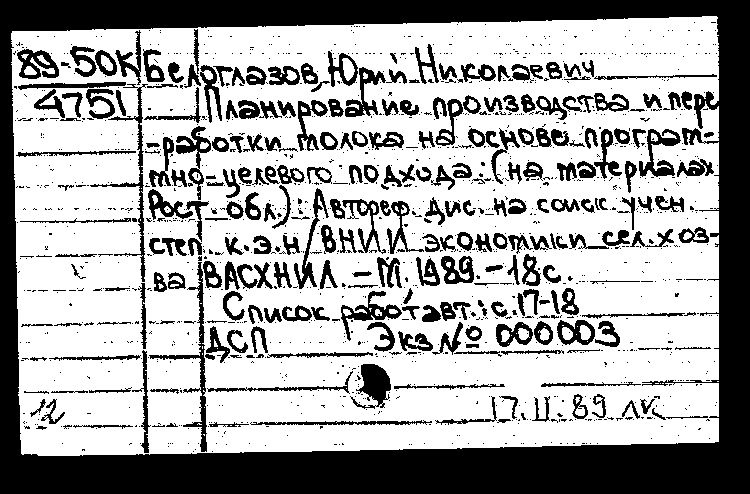 89-50К Белоглазов, Юрий Николаевич
4751 Планирование производства и пере
-работки молока на основе програм-
мно-целевого подхода: (на материалах
Рост. обл.): Автореф. дис. на соиск. учен.
степ. к.э.н / ВНИИ экономики сел. хоз-
ва ВАСХНИЛ. - М. 1989. - 18 с.
Список работ авт.: с. 17-18
ДСП Экз № 000003
12 17.11.89 лк